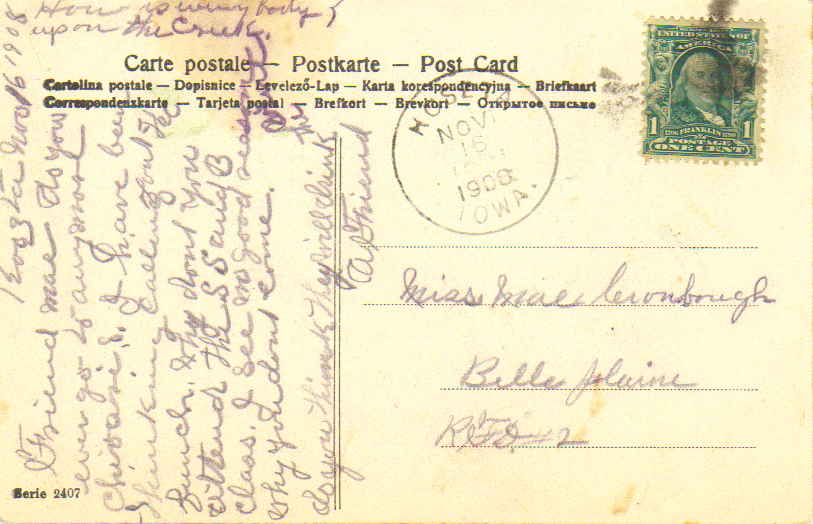 How is every body
upon the Creek.
Carte postale — Postkarte — Post Card
Cartolina postale — Dopisnice — Levelező-Lap — Karta korespondencyjna — Briefkaart
Correspondenzkarte — Tarjeta postal — Brefkort — Brevkort — Открытое письмо
UNITED STATES OF AMERICA
1 FRANKLIN 1
POSTAGE
ONE CENT
NOV
16
1908
IOWA.
Nov 16 1908
Friend Mae do you
ever go to any more
I have been
thinking calling
bunch. Why dont you
attend the S S and B
class. I see no good reason
why you dont come.
do you think they will drink
A Friend
Miss Mae Cronbough
Belle Plaine
RFD 2
Serie 2407